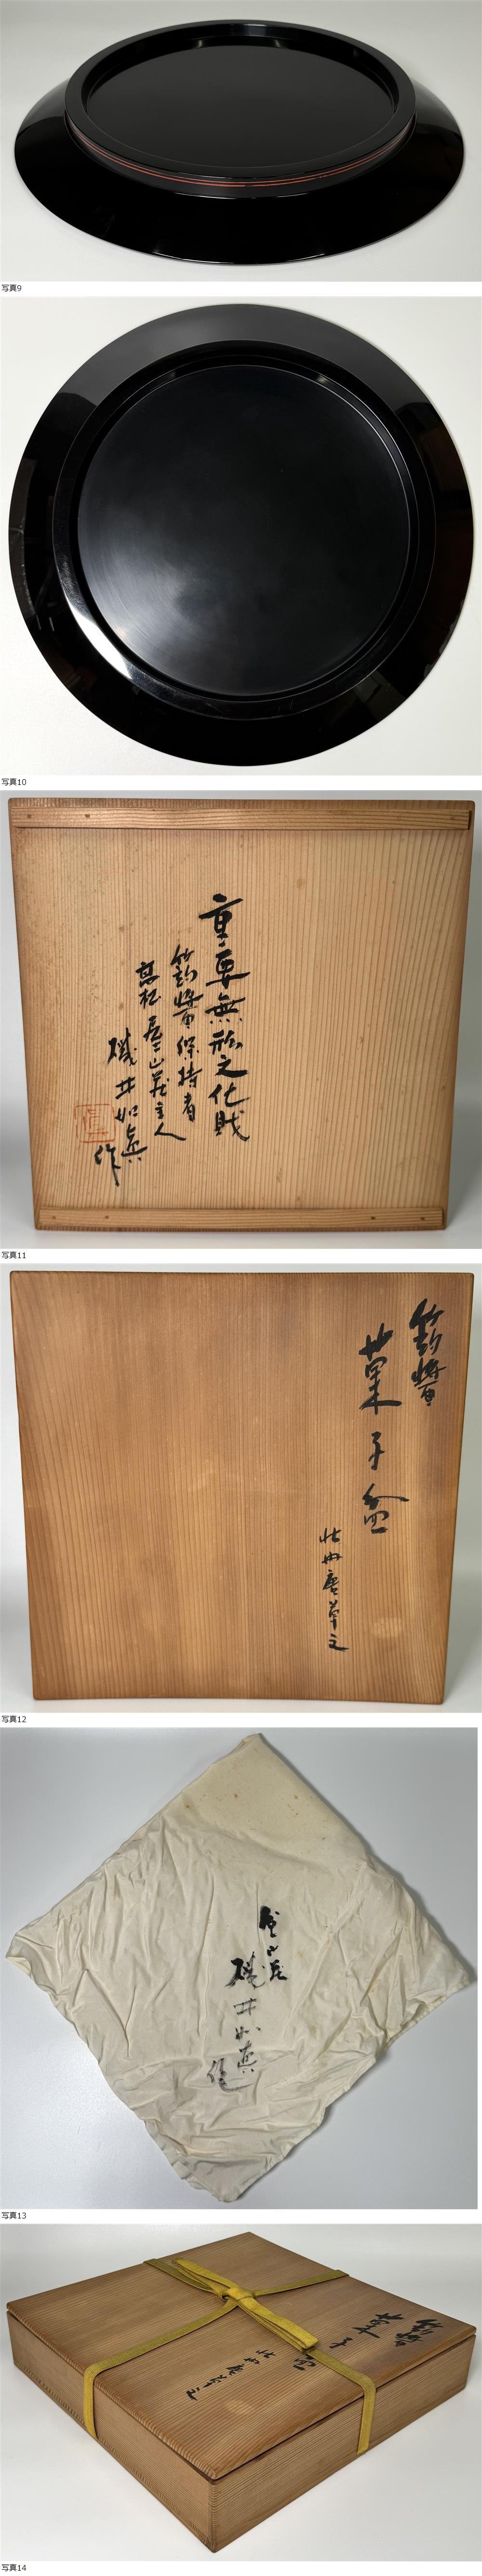 写真9
写真10
重要無形文化財
蒟醬保持者
高松 居山荘主人
磯井如真
作
眞
写真11
蒟醬
菓子盆
牡丹唐草文
写真12
山荘
磯井如真
作
写真13
蒟醬
菓子
盆
牡丹唐草文
写真14